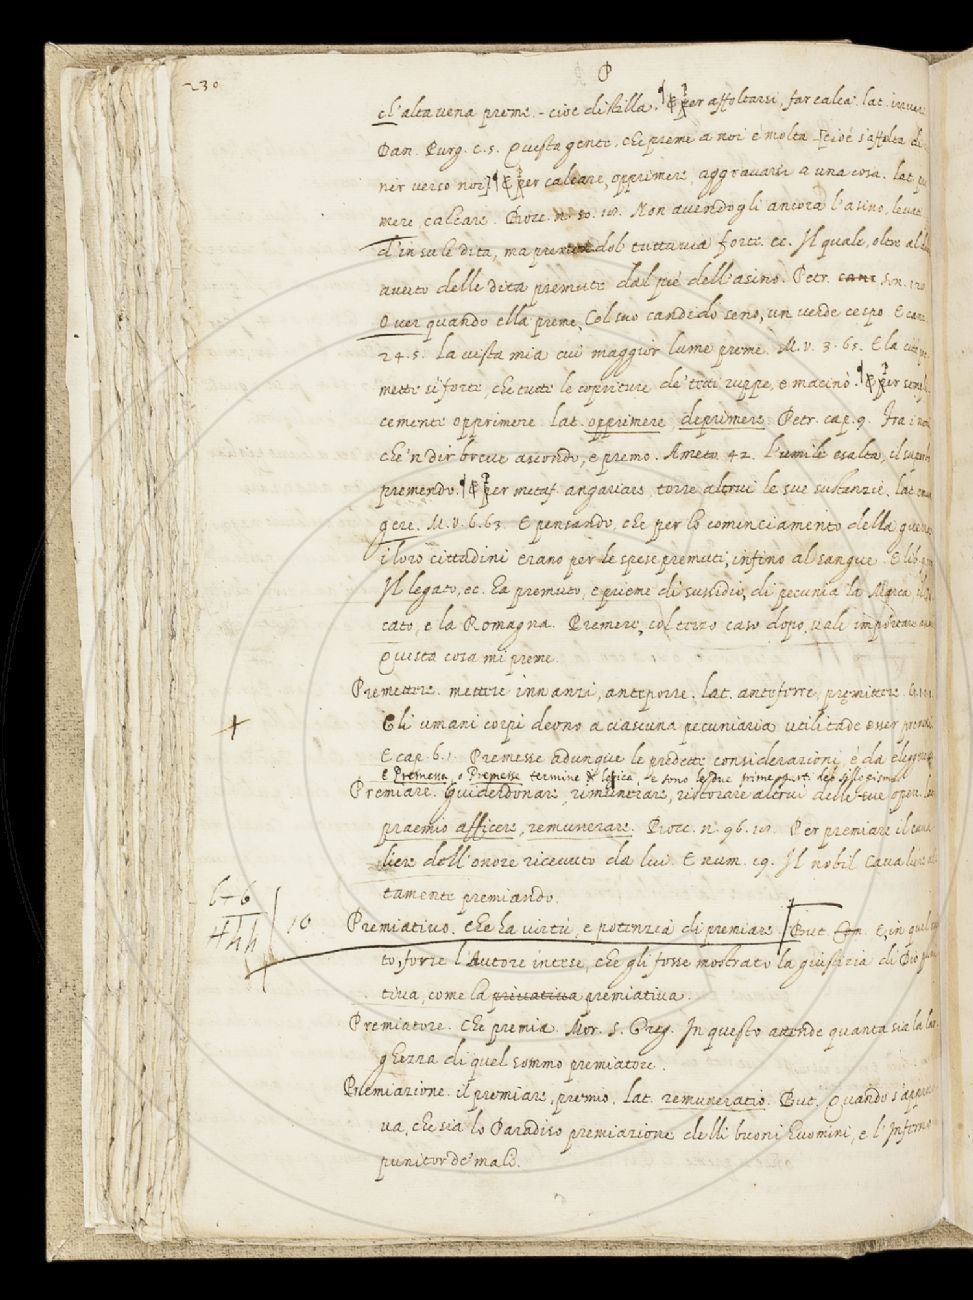 230
P
ch'alta vena preme. - cioè distilla. ¶ per affoltarsi, far calca. lat.
Dan. Purg. c. 5. Questa gente, che preme a noi è molta [cioè s'affolta di
nir verso noi] ¶ per calcare, opprimere, aggravarsi a una cosa. lat.
mere, calcare. Bocc. n. 50. Non avendogli ancora l'asino, levato
d'in su le dita, ma premendol tuttavia forte. ec. Il quale, oltre al
avuto delle dita premute dal piè dell'asino. Petr. canz. son.
Over quando ella preme, Col suo candido seno, un verde cespo. E canz.
24. 5. La vista mia cui maggior lume preme. M. v. 3. 65. E la
mette sì forte, che tutte le copriture de' tetti ruppe, e macinò. ¶ per sempli
cemente opprimere. lat. opprimere, deprimere. Petr. cap. 9. Fra i
che 'n dir breve ascondo, e premo. Ameto. 42. l'umile esalta, il superbo
premendo. ¶ per metaf. angariare, torre altrui le sue sustanzie. lat.
gere. M. v. 6. 63. E pensando, che per lo cominciamento della guerra
i loro cittadini erano per le spese premuti, infino al sangue. E lib.
Il legato, ec. ha premuto, e prieme di sussidio, di pecunia la Marca, il
cato, e la Romagna. Premere, col terzo caso dopo, vale importare
Questa cosa mi preme.
Premettere. mettere innanzi, anteporre. lat. anteferre, premittere.
Gli umani corpi deono a ciascuna pecuniaria utilitade esser
E cap. 6. Premesse adunque le predette considerazioni, è da
E Premessa, o Premesse termine di logica, che sono le due prime parti del sillogismo
Premiare. Guiderdonare, rimunerare, ristorare altrui delle sue opere.
praemio afficere, remunerare. Bocc. n. 96. Per premiare il cava
liere dell'onore ricevuto da lui. E num. 19. Il nobil Cavaliere
tamente premiando.
6+6
10
Premiativo. Che ha virtù, e potenzia di premiare. But. E, in quel
to, forse l'Autore intese, che gli fosse mostrato la giustizia di Dio
tiva, come la privativa premiativa.
Premiatore. Che premia. Mor. S. Greg. In questo attende quanta sia la lar
ghezza di quel sommo premiatore.
Premiazione. il premiare, premio. lat. remuneratio. But. Quando s'appro
va, che sia lo Paradiso premiazione delli buoni huomini, e l'Inferno
punitor de' mali.